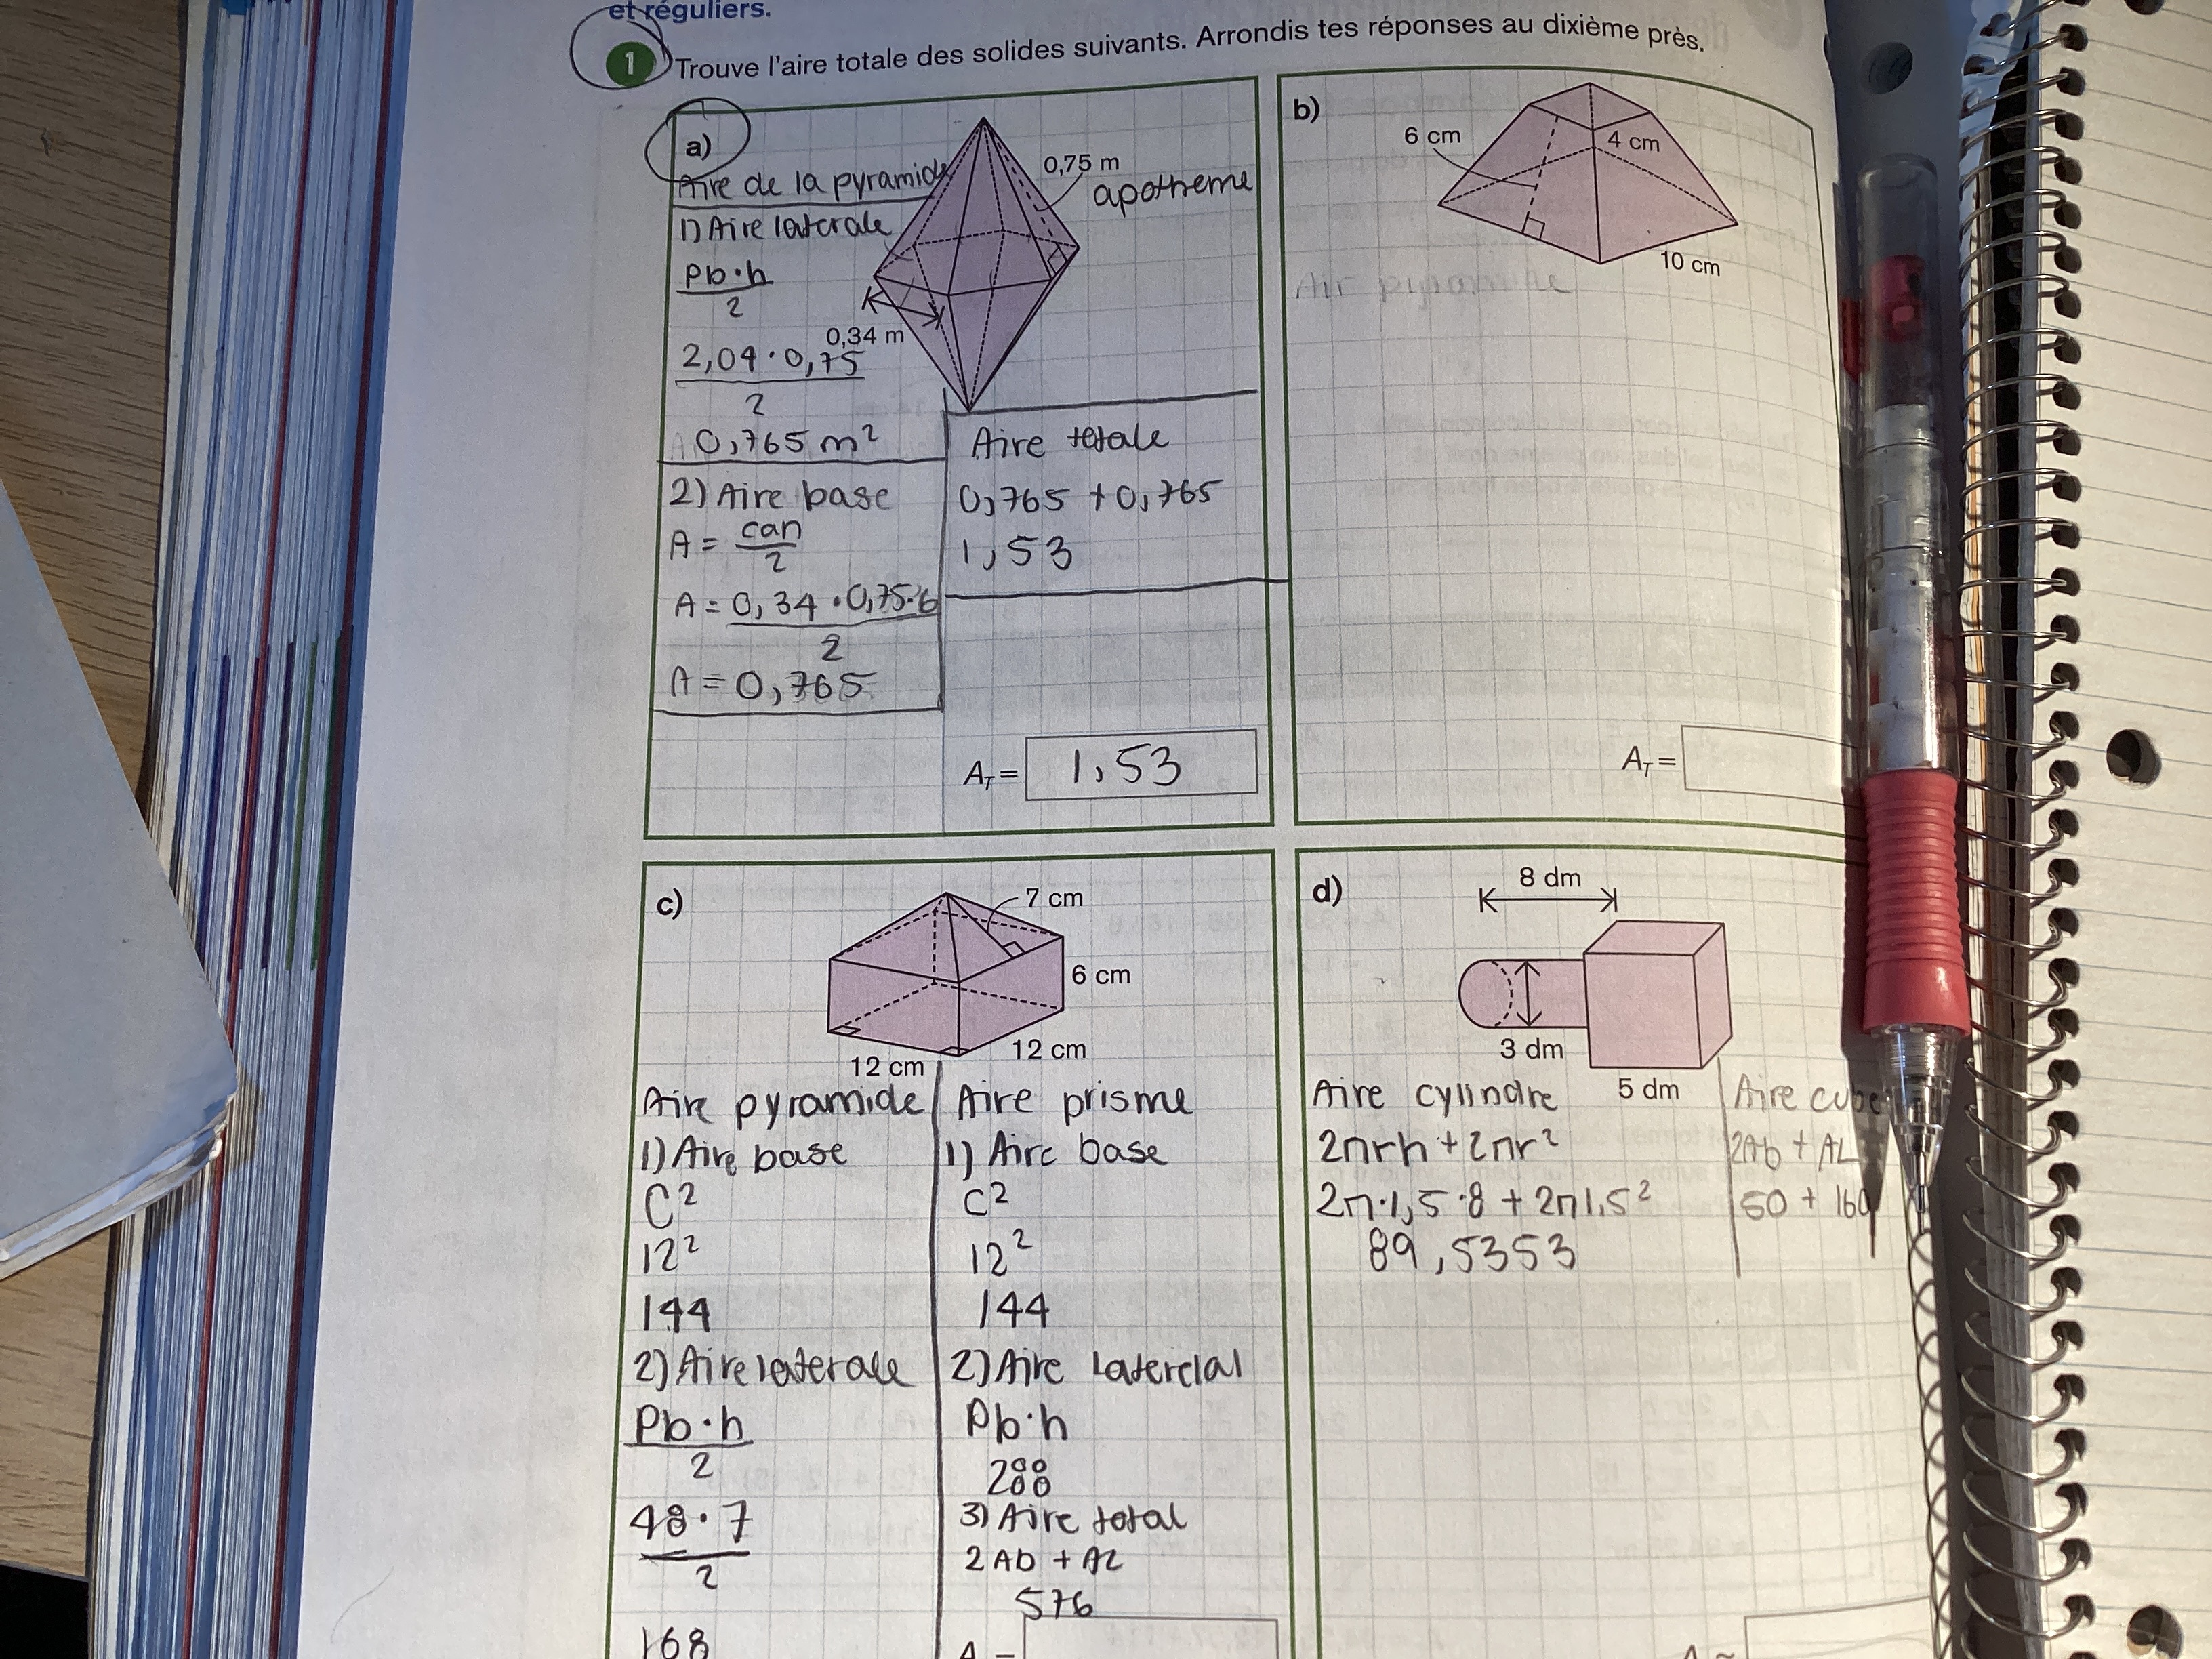 et réguliers.
1 Trouve l'aire totale des solides suivants. Arrondis tes réponses au dixième près.
a)
0,75 m
apotheme
Aire de la pyramide
1) Aire laterale
Pb·h
2
0,34 m
2,04·0,75
2
0,765 m²
2) Aire base
A = can
2
A = 0,34·0,75·6
2
A = 0,765
Aire totale
0,765 + 0,765
1,53
A_T = 1,53
b)
6 cm
4 cm
10 cm
Air pyramide
A_T =
c)
7 cm
6 cm
12 cm
12 cm
Aire pyramide
1) Aire base
C²
12²
144
2) Aire laterale
Pb·h
2
48·7
2
168
Aire prisme
1) Aire base
C²
12²
144
2) Aire laterclal
Pb·h
288
3) Aire total
2 Ab + AL
576
A =
d)
8 dm
3 dm
5 dm
Aire cylindre
2πrh + 2πr²
2π·1,5·8 + 2π1,5²
89,5353
Aire cube
2Ab + AL
50 + 160
A ≈